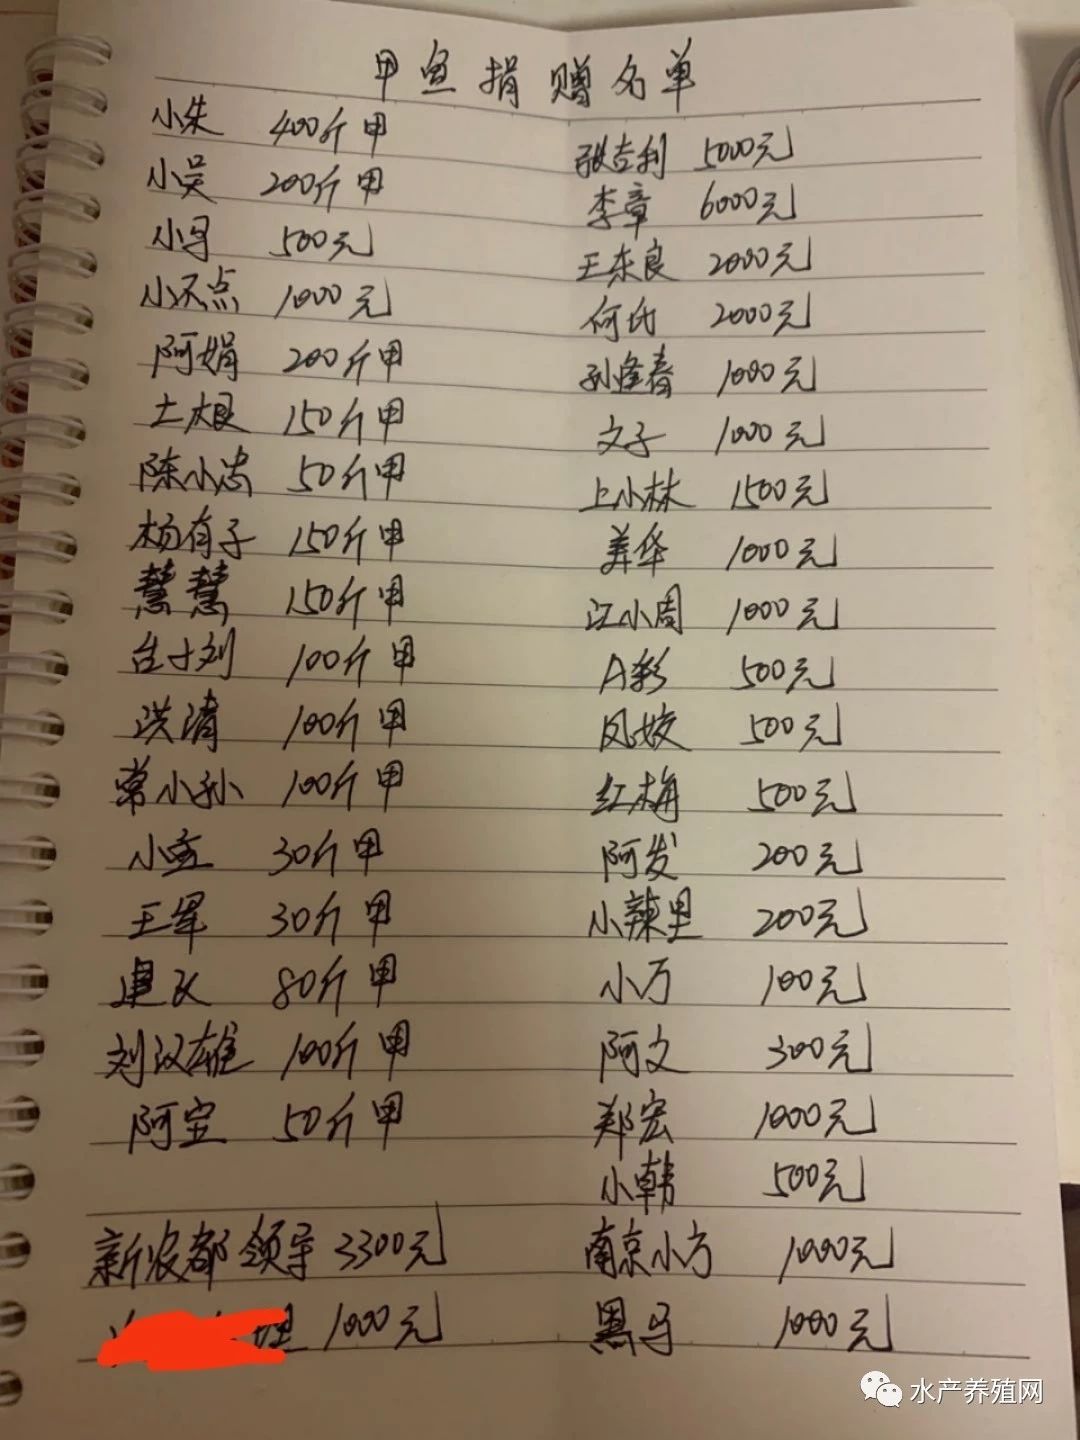 甲鱼捐赠名单
小朱 400斤甲
小吴 200斤甲
小马 500元
小不点 1000元
阿娟 200斤甲
土根 150斤甲
陈小忠 50斤甲
杨有子 150斤甲
慧慧 150斤甲
台十刘 100斤甲
洪清 100斤甲
常小孙 100斤甲
小 30斤甲
王军 30斤甲
建 80斤甲
刘汉雄 100斤甲
阿宝 50斤甲
新农都领导 3300元
理 1000元
张吉利 5000元
李章 6000元
王东良 2000元
何氏 2000元
孙逢春 1000元
文子 1000元
上小林 1500元
美华 1000元
江小周 1000元
A彩 500元
凤姣 500元
红梅 500元
阿发 200元
小辣里 200元
小万 100元
阿文 300元
郑宏 1000元
小韩 500元
南京小方 1000元
黑马 1000元
水产养殖网